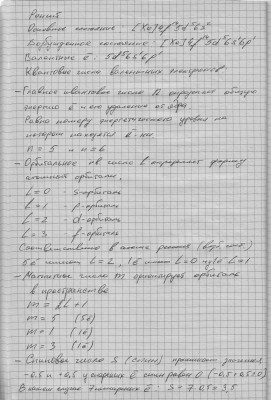 Рений
Основное состояние: [Xe]4f¹⁴5d⁵6s²
Возбужденное состояние: [Xe]4f¹⁴5d⁵6s¹6p¹
Валентные ē: 5d⁵6s¹6p¹
Квантовые числа валентных электронов
- Главное квантовое число n определяет общую
энергию ē и его удаление от ядра
Равно номеру энергетического уровня на
котором находится ē
n = 5 и n = 6
- Орбитальное кв число l определяет форму
атомной орбитали.
L = 0 - s-орбиталь
L = 1 - p-орбиталь
L = 2 - d-орбиталь
L = 3 - f-орбиталь
Соответственно в атоме рения
5ē имеют L = 2, 1ē L = 0 1ē L = 1
- Магнитное число m орбитали
в пространстве
m = 2L + 1
m = 5 (5ē)
m = 1 (1ē)
m = 3 (1ē)
- Спиновое число S (спин) принимает значения
-0,5 и +0,5 у спин равен 0 (-0,5+0,5=0)
В нашем случае 7 ē: S = 7·0,5 = 3,5